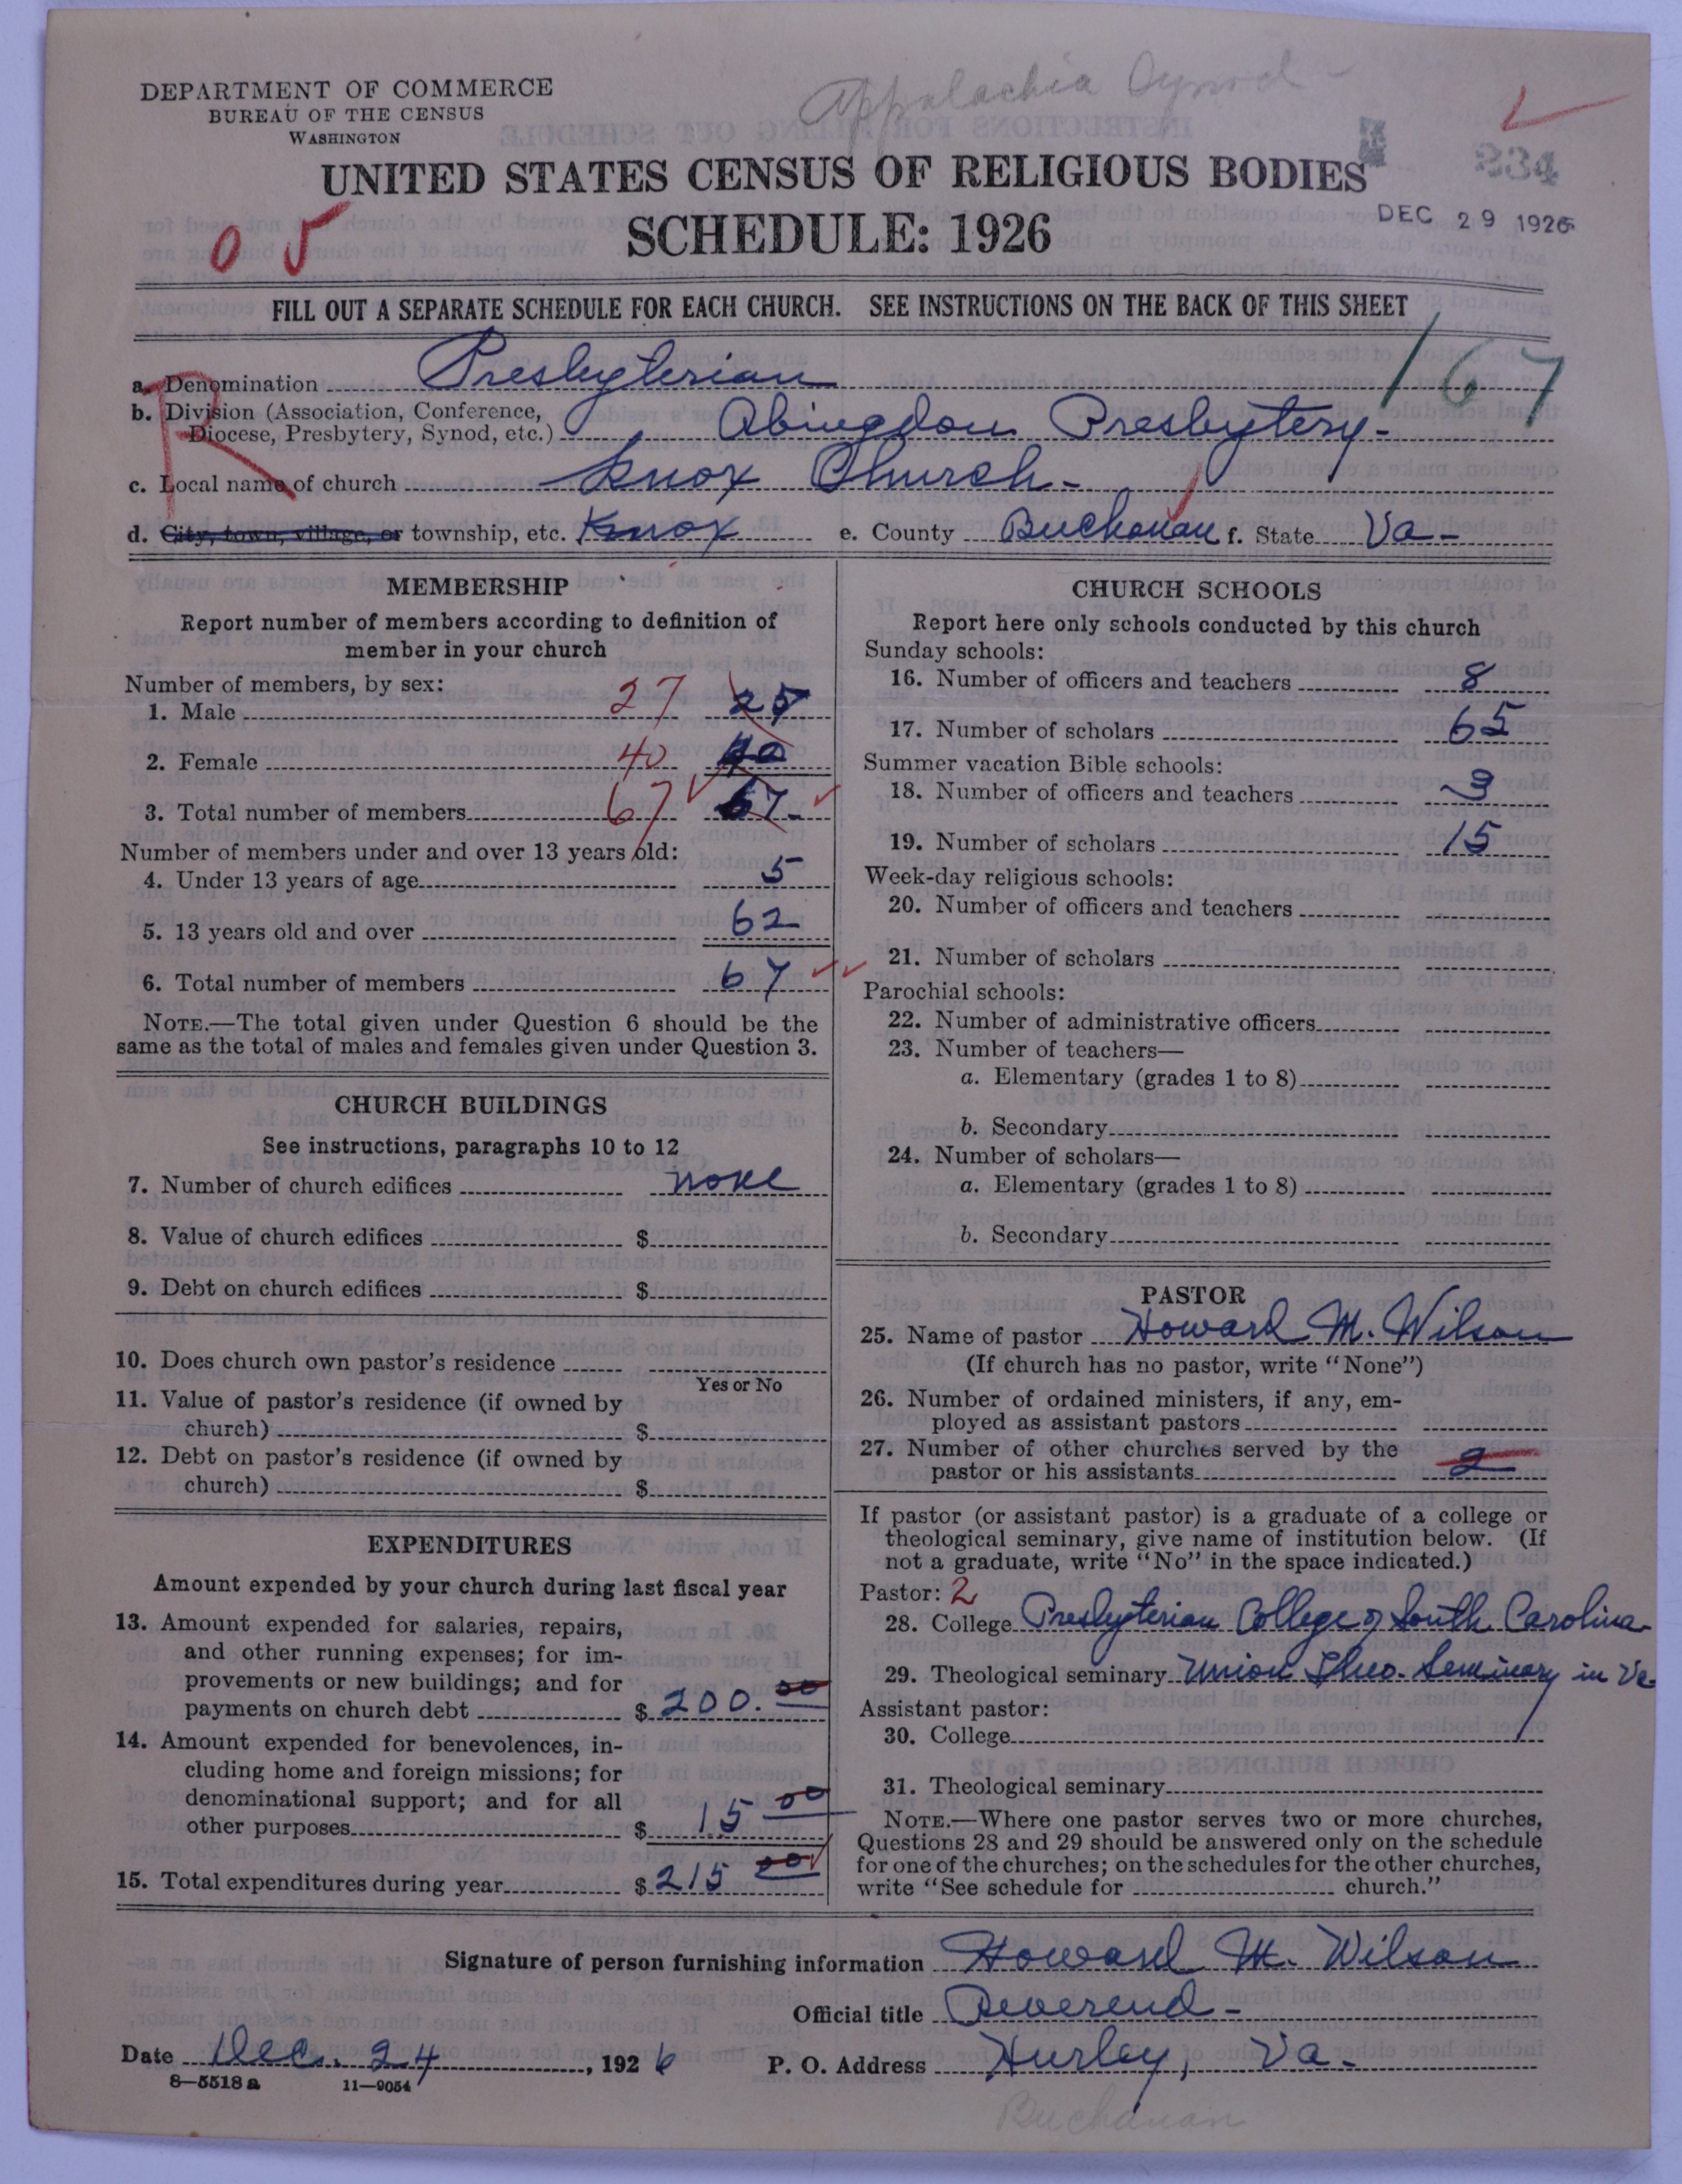 Appalachia Synod -
DEPARTMENT OF COMMERCE
BUREAU OF THE CENSUS
WASHINGTON
UNITED STATES CENSUS OF RELIGIOUS BODIES
834
SCHEDULE: 1926
DEC 29 1926
0 5
FILL OUT A SEPARATE SCHEDULE FOR EACH CHURCH. SEE INSTRUCTIONS ON THE BACK OF THIS SHEET
167
R
a. Denomination Presbyterian
b. Division (Association, Conference,
Diocese, Presbytery, Synod, etc.) Abingdon Presbytery-
c. Local name of church Knox Church-
d. City, town, village, or township, etc. Knox e. County Buchanan f. State Va-
MEMBERSHIP
Report number of members according to definition of
member in your church
Number of members, by sex:
1. Male 27
2. Female 40 40
3. Total number of members 67 67-
Number of members under and over 13 years old:
4. Under 13 years of age 5
5. 13 years old and over 62
6. Total number of members 67
NOTE.—The total given under Question 6 should be the
same as the total of males and females given under Question 3.
CHURCH BUILDINGS
See instructions, paragraphs 10 to 12
7. Number of church edifices none
8. Value of church edifices $
9. Debt on church edifices $
10. Does church own pastor's residence
Yes or No
11. Value of pastor's residence (if owned by
church) $
12. Debt on pastor's residence (if owned by
church) $
EXPENDITURES
Amount expended by your church during last fiscal year
13. Amount expended for salaries, repairs,
and other running expenses; for im-
provements or new buildings; and for
payments on church debt $ 200.00
14. Amount expended for benevolences, in-
cluding home and foreign missions; for
denominational support; and for all
other purposes $ 15 00
15. Total expenditures during year $ 215 00
CHURCH SCHOOLS
Report here only schools conducted by this church
Sunday schools:
16. Number of officers and teachers 8
17. Number of scholars 65
Summer vacation Bible schools:
18. Number of officers and teachers 3
19. Number of scholars 15
Week-day religious schools:
20. Number of officers and teachers
21. Number of scholars
Parochial schools:
22. Number of administrative officers
23. Number of teachers—
a. Elementary (grades 1 to 8)
b. Secondary
24. Number of scholars—
a. Elementary (grades 1 to 8)
b. Secondary
PASTOR
25. Name of pastor Howard M. Wilson
(If church has no pastor, write "None")
26. Number of ordained ministers, if any, em-
ployed as assistant pastors
27. Number of other churches served by the
pastor or his assistants 2
If pastor (or assistant pastor) is a graduate of a college or
theological seminary, give name of institution below. (If
not a graduate, write "No" in the space indicated.)
Pastor: 2
28. College Presbyterian College of South Carolina
29. Theological seminary Union Theo. Seminary in Va
Assistant pastor:
30. College
31. Theological seminary
NOTE.—Where one pastor serves two or more churches,
Questions 28 and 29 should be answered only on the schedule
for one of the churches; on the schedules for the other churches,
write "See schedule for church."
Signature of person furnishing information Howard M. Wilson
Official title Reverend-
Date Dec. 24, 1926 P. O. Address Hurley, Va.
8—5518 a 11—9054
Buchanan